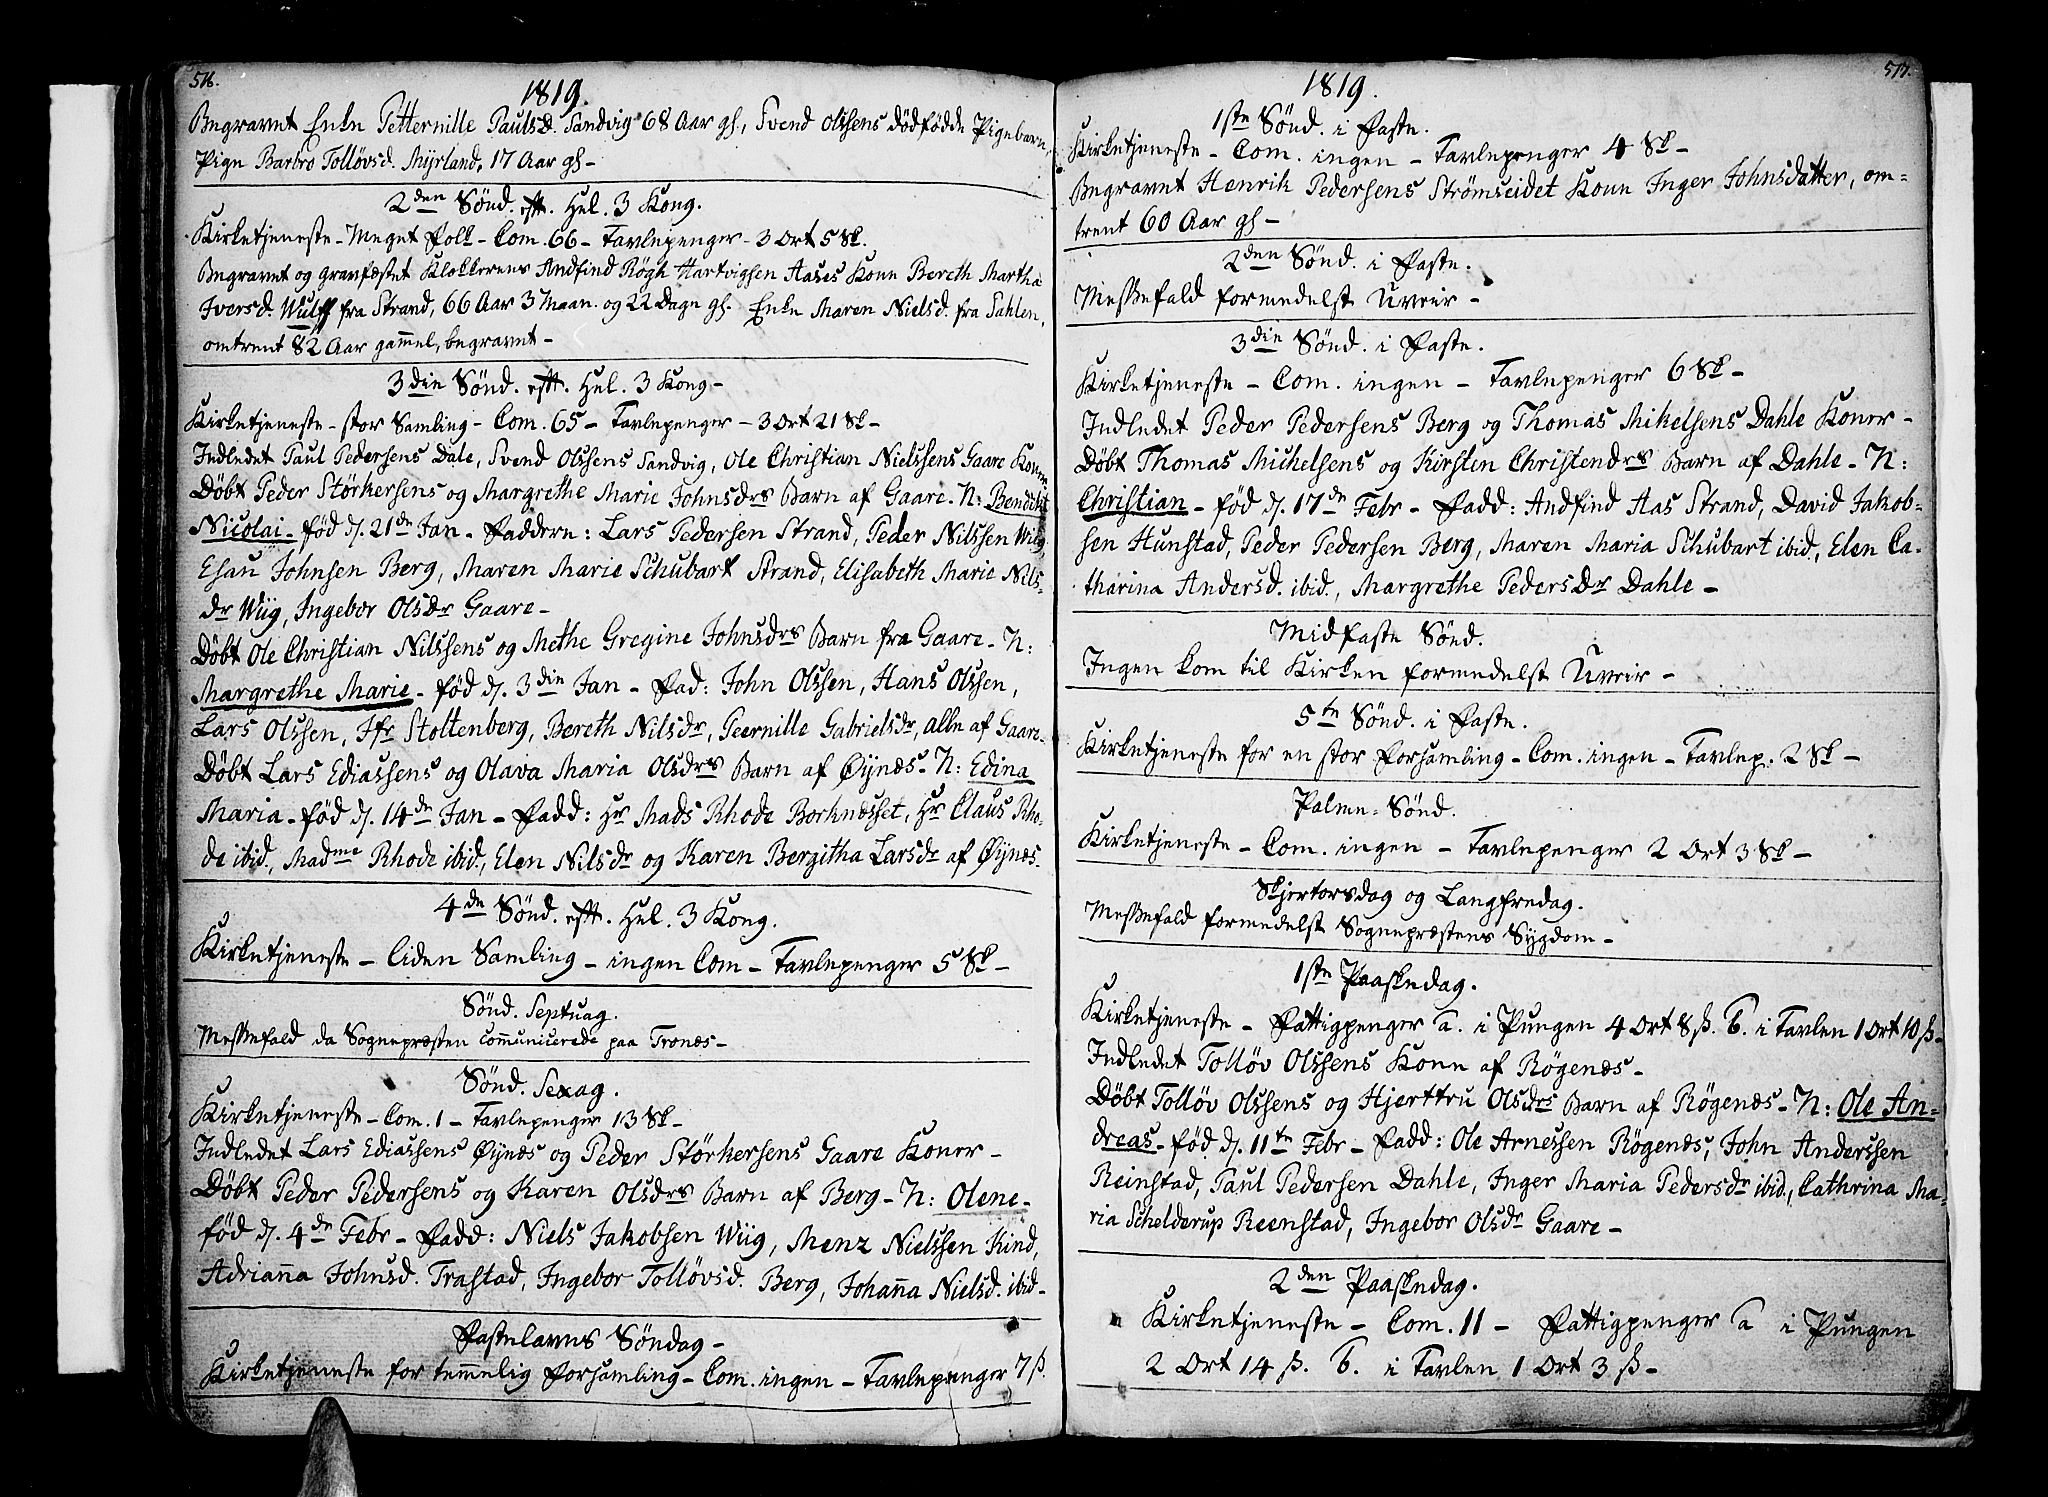 516.
1819.
Begravet Enke Petternille Paulsd. Sandvig 68 Aar gl., Svend Olssens dødfødde Pigebarn,
Pige Barbro Tolløvsd. Myrland, 17 Aar gl –
2den Sønd. eft. Hel. 3 Kong.
Kirketjeneste – Meget Folk – Com. 66 – Tavlepenger – 3 Ort 5 Sk.
Begravet og gravfæstet Klokkerens Andfind Rögh Hartvigsen Aases Kone Bereth Martha
Iversd. Wulff fra Strand, 66 Aar 3 Maan. og 22 Dage gl. Enke Maren Nielsd. fra Sahlen,
omtrent 82 Aar gammel, begravet –
3die Sønd. eft. Hel. 3 Kong –
Kirketjeneste – stor Samling – Com. 65 – Tavlepenger – 3 Ort 21 Sk –
Indledet Paul Pedersens Dale, Svend Olsens Sandvig, Ole Christian Nielssens Gaare Koner
Døbt Peder Størkersens og Margrethe Marie Johnsdrs Barn af Gaare – N: Bendikt
Nicolai – fød d. 21de Jan – Faddere: Lars Pedersen Strand, Peder Nilssen Wiig,
Esau Johnsen Berg, Maren Marie Schubart Strand, Elisabeth Marie Nils-
dr Wiig, Ingebor Olsdr Gaare –
Døbt Ole Christian Nilssens og Methe Gregine Johnsdrs Barn fra Gaare – N:
Margrethe Marie – fød d. 3die Jan – Fad: John Olssen, Hans Olssen,
Lars Olssen, Jfr Stoltenberg, Bereth Nilsdr, Peernille Gabrielsdr, alle af Gaare –
Døbt Lars Ediassens og Olava Maria Olsdrs Barn af Øynæs – N: Edina
Maria – fød d. 14de Jan – Fadd: Hr Mads Rhode Borknæsset, Hr Claus Rho-
de ibid., Madme Rhode ibid., Elen Nilsdr og Karen Bergitha Larsdr af Øynæs –
4de Sønd. eft. Hel. 3 Kong.
Kirketjeneste – liden Samling – ingen Com – Tavlepenger 5 Sk –
Sønd. Septuag.
Messefald da Sognepræsten communicerede paa Tronæs –
Sønd. Sexag.
Kirketjeneste – Com. 1 – Tavlepenger 13 Sk –
Indledet Lars Ediassens Øynæs og Peder Størkersens Gaare Koner –
Døbt Peder Pedersens og Karen Olsdrs Barn af Berg – N: Olene –
fød d. 4de Febr – Fadd: Niels Jakobsen Wiig, Menz Nielssen Kind,
Adrianna Johnsd. Trastad, Ingebor Tolløvsd. Berg, Johanna Nielsd. ibid –
Fastelavns Søndag –
Kirketjeneste for temmelig Forsamling – Com. ingen – Tavlepenger 7 ß.
517.
1819.
1ste Sønd. i Faste.
Kirketjeneste – Com. ingen – Tavlepenger 4 Sk –
Begravet Henrik Pedersens Strømseidet Kone Inger Johnsdatter, om-
trent 60 Aar gl –
2den Sønd. i Faste.
Messefald formedelst Uveir –
3die Sønd. i Faste.
Kirketjeneste – Com. ingen – Tavlepenger 6 Sk –
Indledet Peder Pedersens Berg og Thomas Mikelsens Dahle Koner –
Døbt Thomas Michelsens og Kirsten Christendrs Barn af Dahle – N:
Christian – fød d. 17de Febr – Fadd: Andfind Aas Strand, David Jakob-
sen Hunstad, Peder Pedersen Berg, Maren Maria Schubart ibid., Elen Ca-
tharina Andersd. ibid., Margrethe Pedersdr Dahle –
Midfaste Sønd.
Ingen kom til Kirken formedelst Uveir –
5te Sønd. i Faste.
Kirketjeneste for en stor Forsamling – Com. ingen – Tavlep. 2 Sk –
Palme-Sønd.
Kirketjeneste – Com. ingen – Tavlepenger 2 Ort 3 Sk –
Skjertorsdag og Langfredag.
Messefald formedelst Sognepræstens Sygdom –
1ste Paaskedag.
Kirketjeneste – Fattigpenger a. i Pungen 4 Ort 8 ß. b. i Tavlen 1 Ort 10 ß –
Indledet Tolløv Olssens Kone af Røgenæs –
Døbt Tolløv Olssens og Hjerttru Olsdrs Barn af Røgenæs – N: Ole An-
dreas – fød d. 11te Febr – Fadd: Ole Arnessen Røgenæs, John Anderssen
Reinstad, Paul Pedersen Dahle, Inger Maria Pedersdr ibid., Cathrina Ma-
ria Schelderup Reenstad, Ingebor Olsdr Gaare –
2den Paaskedag.
Kirketjeneste – Com. 11 – Fattigpenger a i Pungen
2 Ort 14 ß. b. i Tavlen 1 Ort 3 ß –